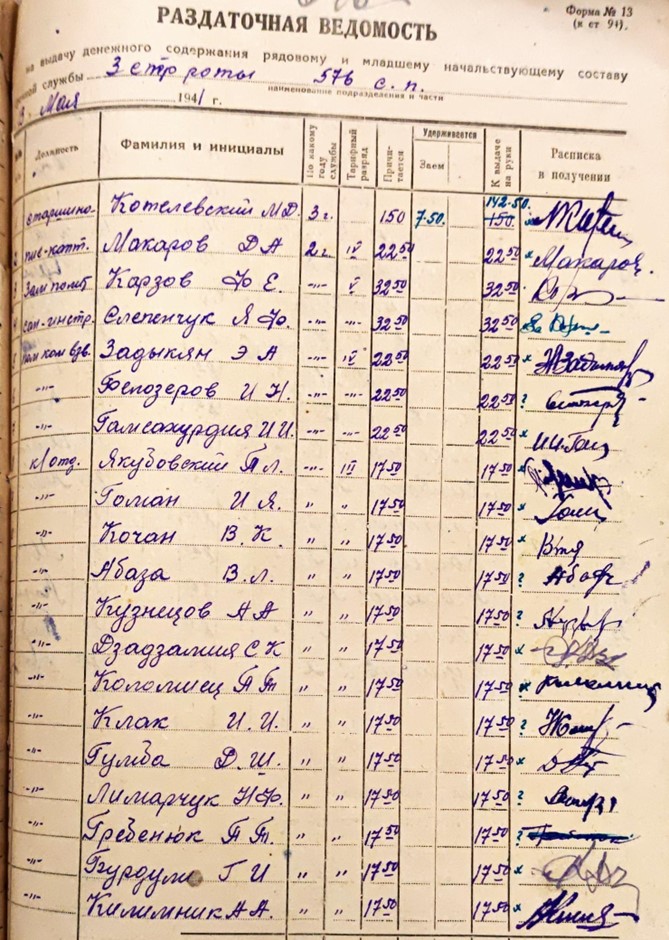 Форма № 13
(к ст 94).
РАЗДАТОЧНАЯ ВЕДОМОСТЬ
на выдачу денежного содержания рядовому и младшему начальствующему составу
службы 3 стр роты 576 с. п.
наименование подразделения и части
Мая 1941 г.
Должность Фамилия и инициалы По какому году службы Тарифный разряд Причитается Удерживается Заем К выдаче на руки Расписка в получении
142-50.
старшина Котелевский М.Д. 3 г. 150 7-50. 150
Макаров Д А 2 г. IV 22 50 22 50 х Макаров
Зам полит Карзов Ф Е. -"- V 32 50 32 50
сан-инстр. Слепенчук Я Ф. -"- -"- 32 50 32 50
пом ком взв. Задыкян Э А -"- IV 22 50 22 50 х
-"- Белозеров И Н. -"- -"- 22 50 22 50 ?
-"- Гамсахурдия И И. -"- -"- 22 50 22 50 х
к/отд. Якубовский П Л. -"- III 17 50 17 50 х
-"- Гоман И Я. " " 17 50 17 50 х
-"- Кочан В. К " " 17 50 17 50 х
-"- Абаза В. Л. " " 17 50 17 50 ?
-"- Кузнецов А А " " 17 50 17 50 ?
-"- Дзадзамия С К " " 17 50 17 50 х
-"- Коломиец П Т " " 17 50 17 50 х
-"- Клак И. И. " " 17 50 17 50 ?
-"- Гумба Д. Ш. " " 17 50 17 50 х
-"- Лимарчук Н Ф. " " 17 50 17 50 ?
-"- Гребенюк П Т. " " 17 50 17 50 ?
-"- Гурдули Г И " " 17 50 17 50 х
-"- Килимник А А. " " 17 50 17 50 х